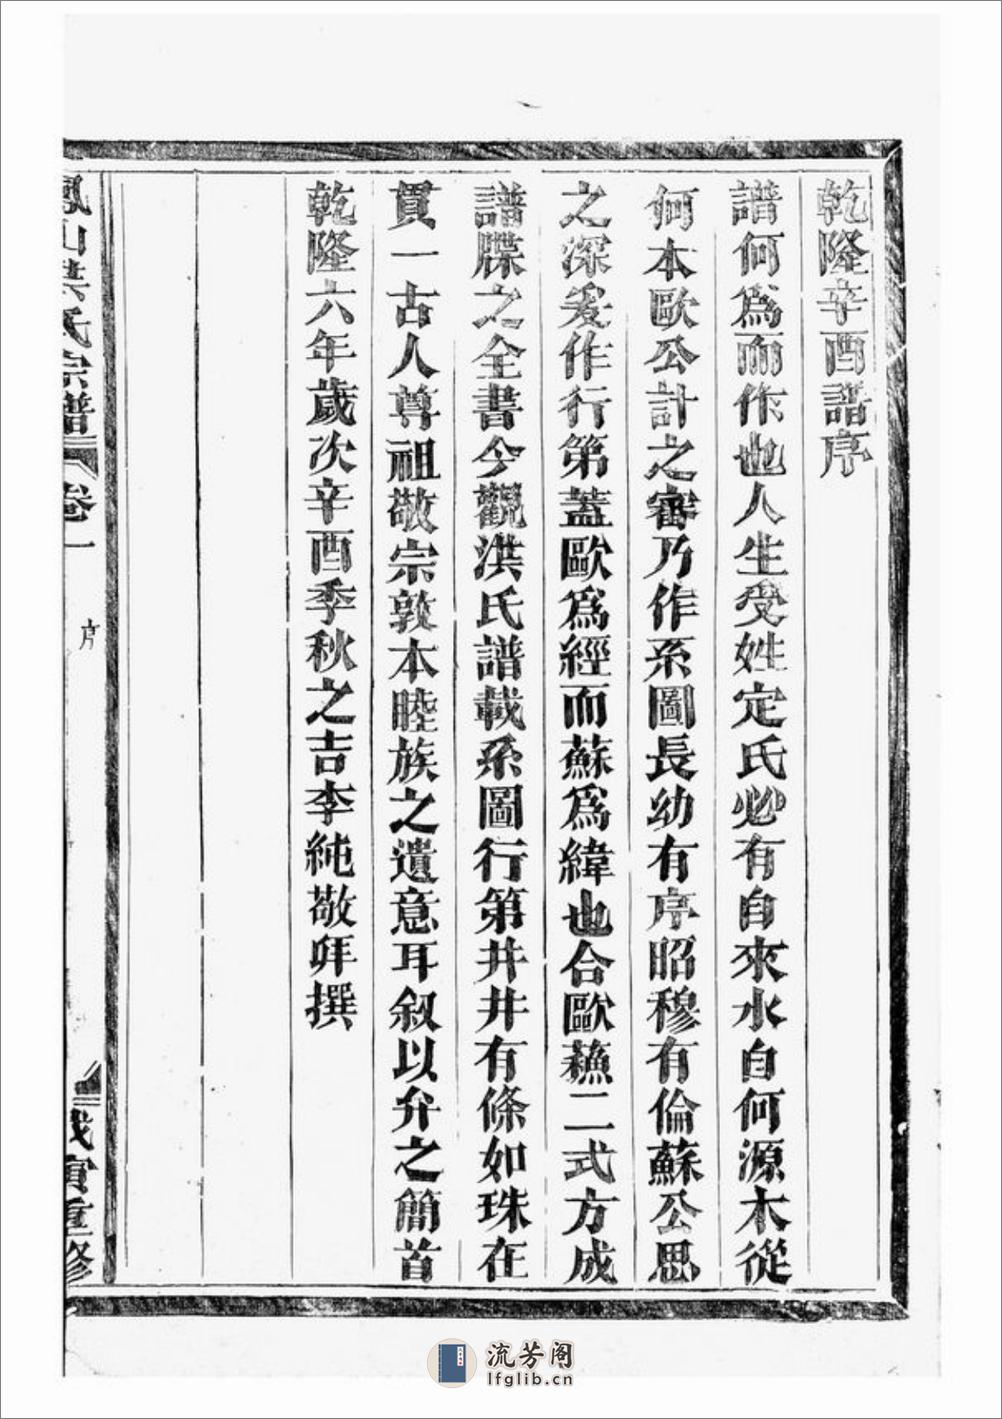 乾隆辛酉譜序
譜何爲而作也人生受姓定氏必有自來水自何源木從
何本歐公計之審乃作系圖長幼有序昭穆有倫蘇公思
之深爰作行第蓋歐爲經而蘇爲緯也合歐蘓二式方成
譜牒之全書今觀洪氏譜載系圖行第井井有條如珠在
貫一古人尊祖敬宗敦本睦族之遺意耳叙以弁之簡首
乾隆六年歲次辛酉季秋之吉李純敬拜撰
鳳山洪氏宗譜
卷一
序
戊寅重修
流芳阁
lfglib.cn